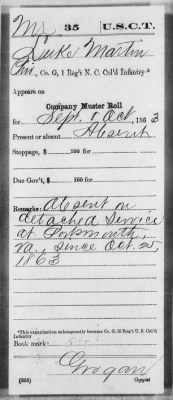 M | 35 | U.S.C.T.
Luke Martin
Co. G, 1 Reg't N. C. Col'd Infantry.*
Appears on
Company Muster Roll
for Sept & Oct, 1863
Present or absent Absent
Stoppage, $ 100 for
Due Gov't, $ 100 for
Remarks: Absent on
detached service
at Portsmouth,
Va. since Oct. 25
1863
*This organization subsequently became Co. G, 35 Reg't U. S. Col'd
Infantry
Book mark:
Grogan
(358) Copyist